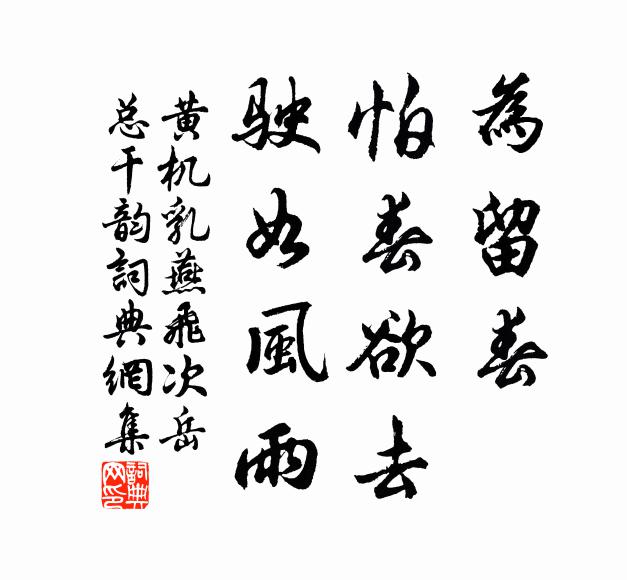 為留春
怕春欲去
駛如風雨
黄机乳燕飛次岳
总干韵詞典網集
詞典
网印